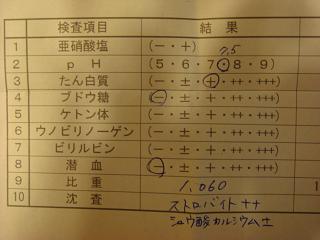 検査項目 結果
1 亜硝酸塩 (－・＋)
7.5
2 pH (5・6・7・8・9)
3 たん白質 (－・±・＋・++・+++)
4 ブドウ糖 (－・±・＋・++・+++)
5 ケトン体 (－・±・＋・++・+++)
6 ウノビリノーゲン (－・±・＋・++・+++)
7 ビリルビン (－・±・＋・++・+++)
8 潜血 (－・±・＋・++・+++)
9 比重 1.060 1
10 沈査 ストロバイト ++
シュウ酸カルシウム ±